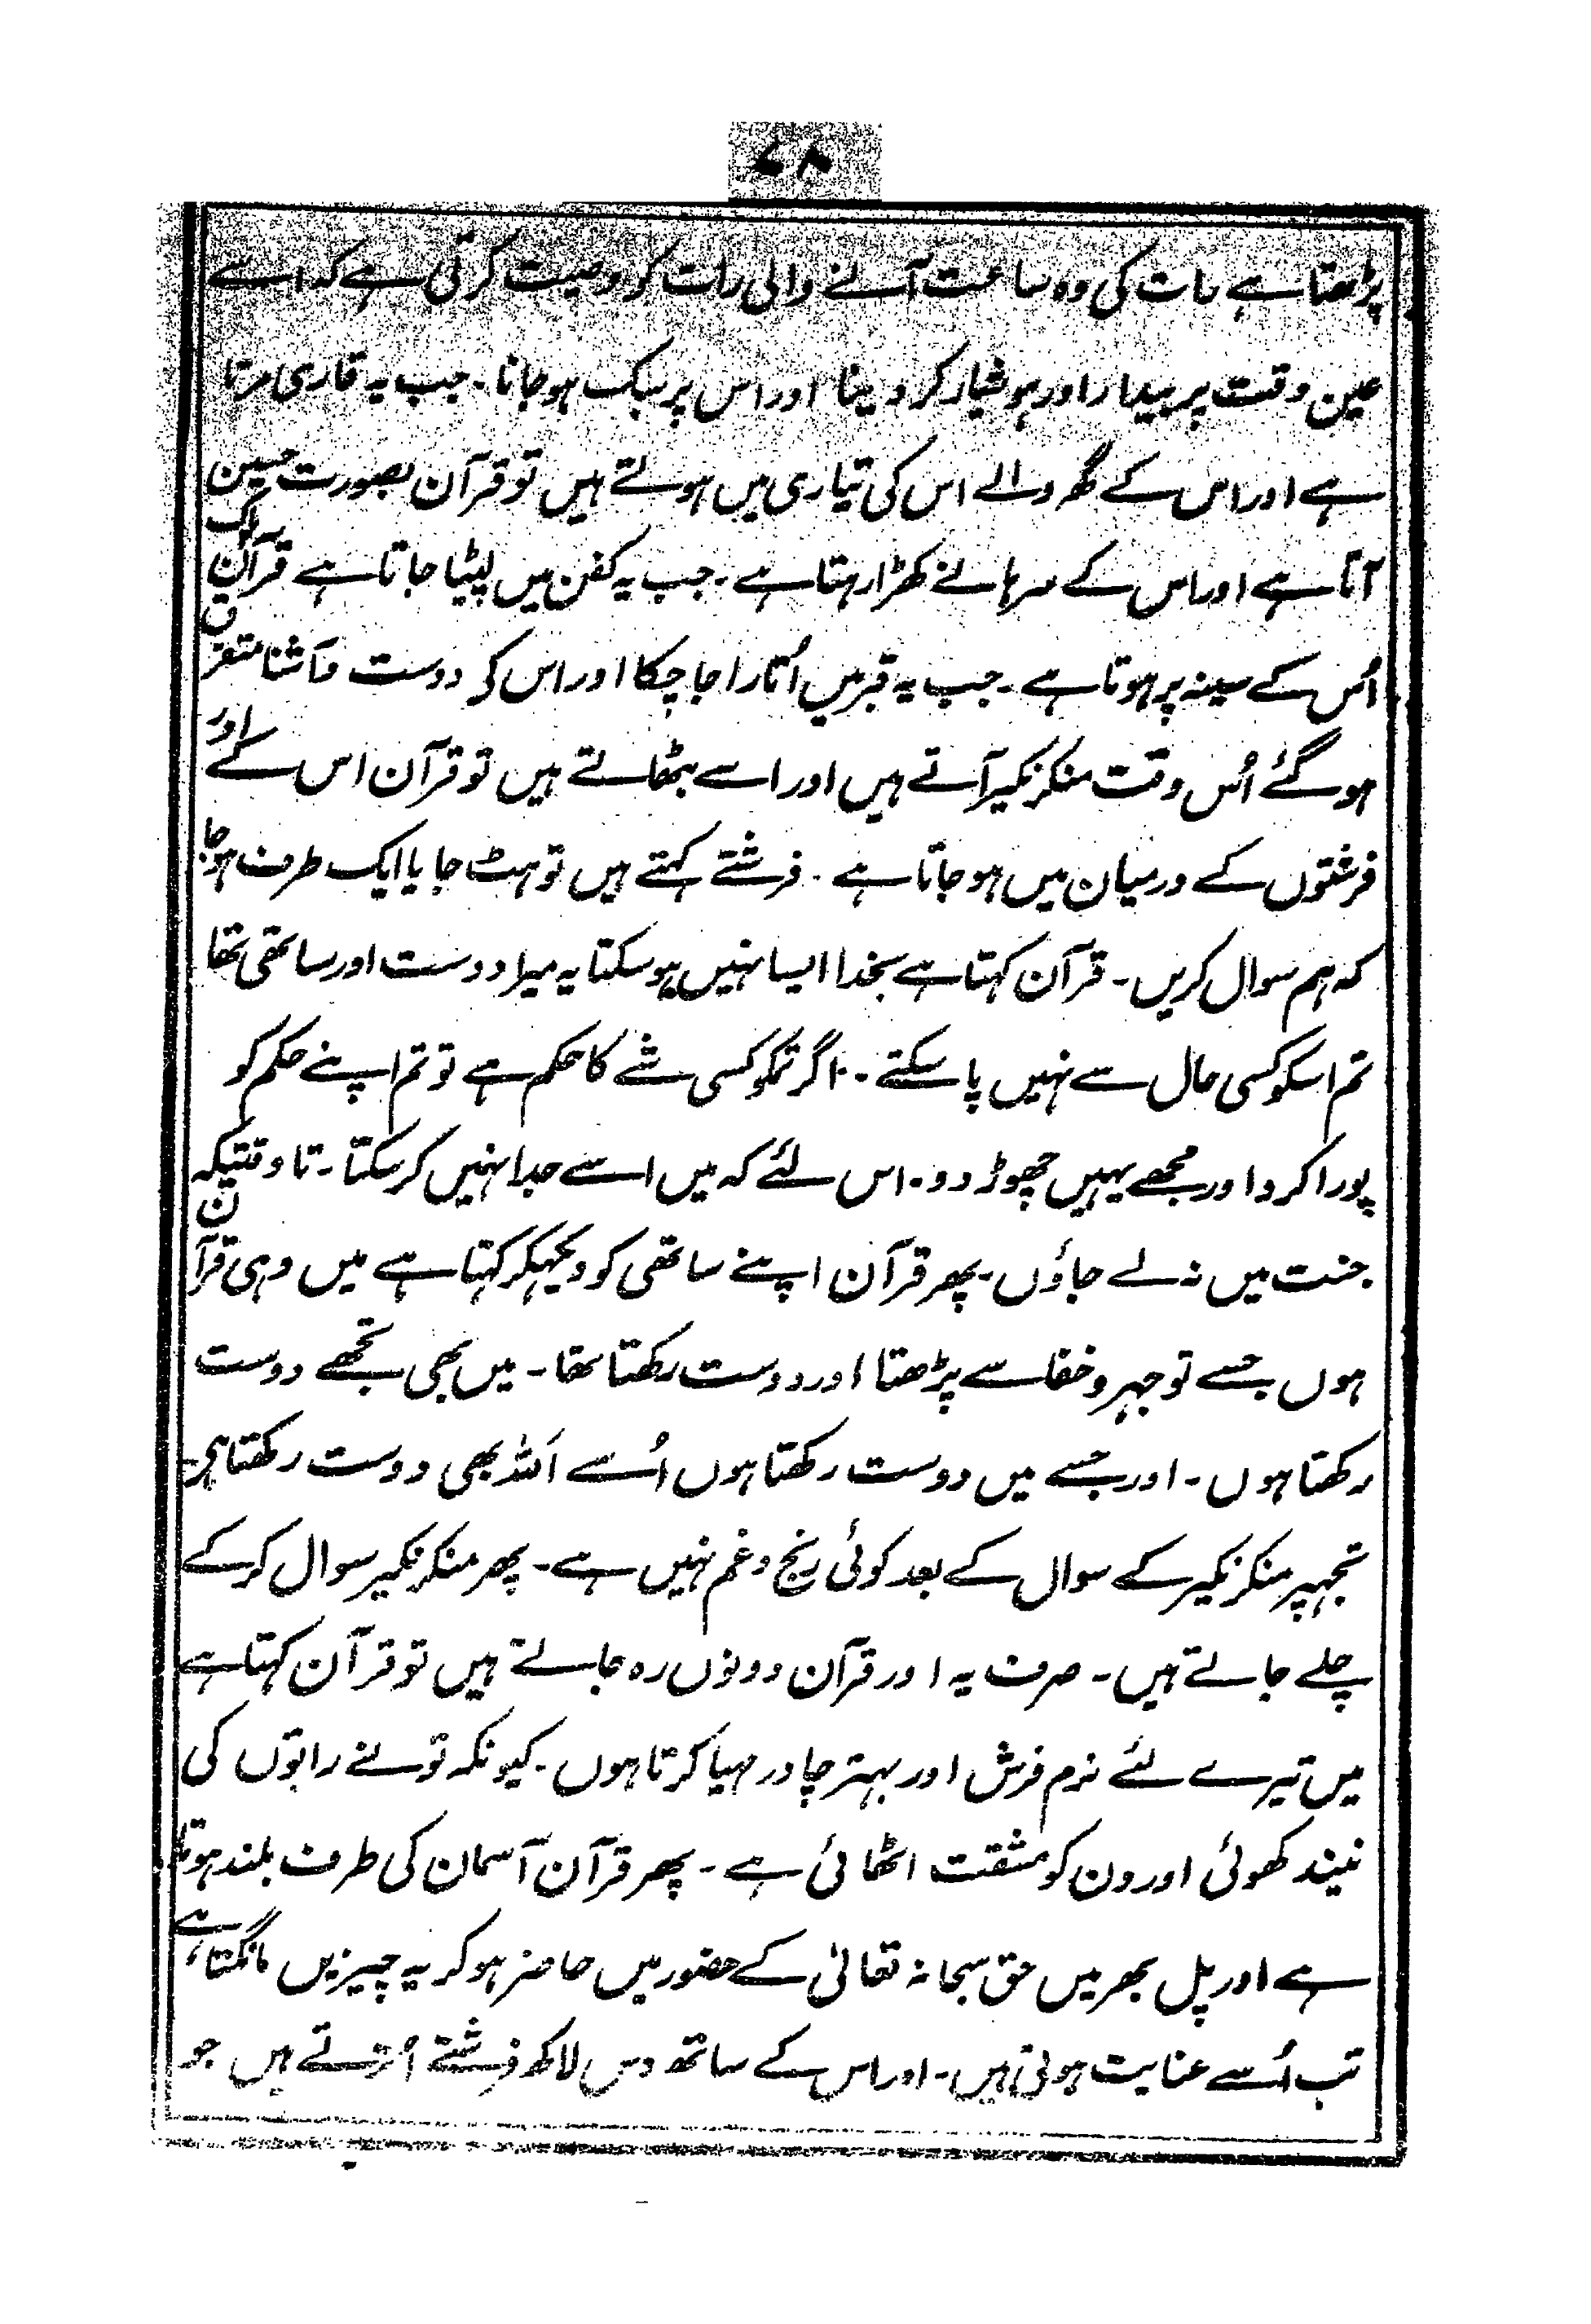 ۷۸
پڑھتا ہے رات کی وہ ساعت آنے والی رات کو وصیت کرتی ہے کہ اسے
عین وقت پر بیدار اور ہوشیار کر دینا اور اس پر سبک ہو جانا۔ جب یہ قاری مرتا
ہے اور اس کے گھر والے اس کی تیاری میں ہوتے ہیں تو قرآن بصورت حسین
آتا ہے اور اس کے سرہانے کھڑا رہتا ہے۔ جب یہ کفن میں لپیٹا جاتا ہے قرآن
اُس کے سینہ پر ہوتا ہے۔ جب یہ قبر میں اُتارا جا چکا اور اس کی دوست و آشنا متفرق
ہو گئے اُس وقت منکر نکیر آتے ہیں اور اسے بٹھاتے ہیں تو قرآن اس کے اور
فرشتوں کے درمیان میں ہو جاتا ہے۔ فرشتے کہتے ہیں تو ہٹ جا یا ایک طرف ہو جا
کہ ہم سوال کریں۔ قرآن کہتا ہے بخدا ایسا نہیں ہو سکتا یہ میرا دوست اور ساتھی تھا
تم اسکو کسی حال سے نہیں پا سکتے۔ اگر تمکو کسی شے کا حکم ہے تو تم اپنے حکم کو
پورا کرو اور مجھے یہیں چھوڑ دو۔ اس لئے کہ میں اسے جدا نہیں کر سکتا۔ تا وقتیکہ
جنت میں نہ لے جاؤں۔ پھر قرآن اپنے ساتھی کو دیکھکر کہتا ہے میں وہی قرآن
ہوں جسے تو جہر و خفا سے پڑھتا اور دوست رکھتا تھا۔ میں بھی تجھے دوست
رکھتا ہوں۔ اور جسے میں دوست رکھتا ہوں اُسے اللہ بھی دوست رکھتا ہی۔
تجہپر منکر نکیر کے سوال کے بعد کوئی رنج و غم نہیں ہے۔ پھر منکر نکیر سوال کر کے
چلے جاتے ہیں۔ صرف یہ اور قرآن دونوں رہ جاتے ہیں تو قرآن کہتا ہے
میں تیرے لئے نرم فرش اور بہتر چادر مہیا کرتا ہوں۔ کیونکہ تو نے راتوں کی
نیند کھوئی اور دن کو مشقت اٹھائی ہے۔ پھر قرآن آسمان کی طرف بلند ہوتا
ہے اور پل بھر میں حق سبحانہ تعالیٰ کے حضور میں حاضر ہو کر یہ چیزیں مانگتا ہے
تب اُسے عنایت ہوتی ہیں۔ اور اس کے ساتھ دس لاکھ فرشتے اُترتے ہیں جو